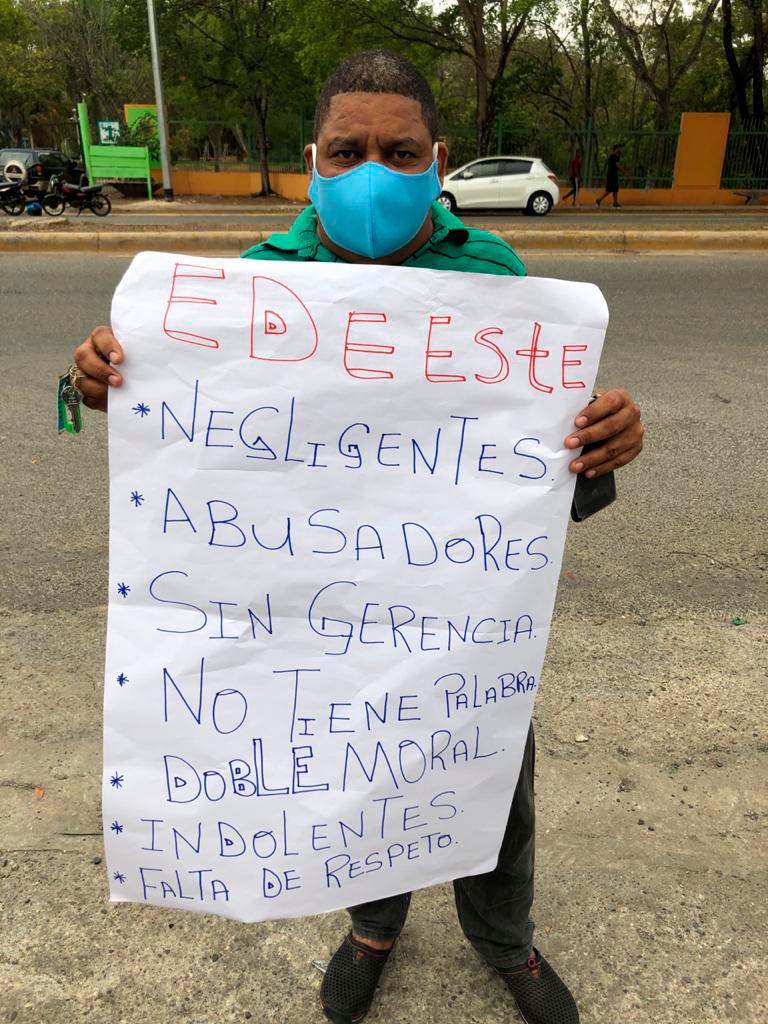 EDEEste
* NEGLIGENTES.
* ABUSADORES.
* SIN GERENCIA.
* NO TIENE PALABRA.
* DOBLE MORAL.
* INDOLENTES.
* FALTA DE RESPETO.